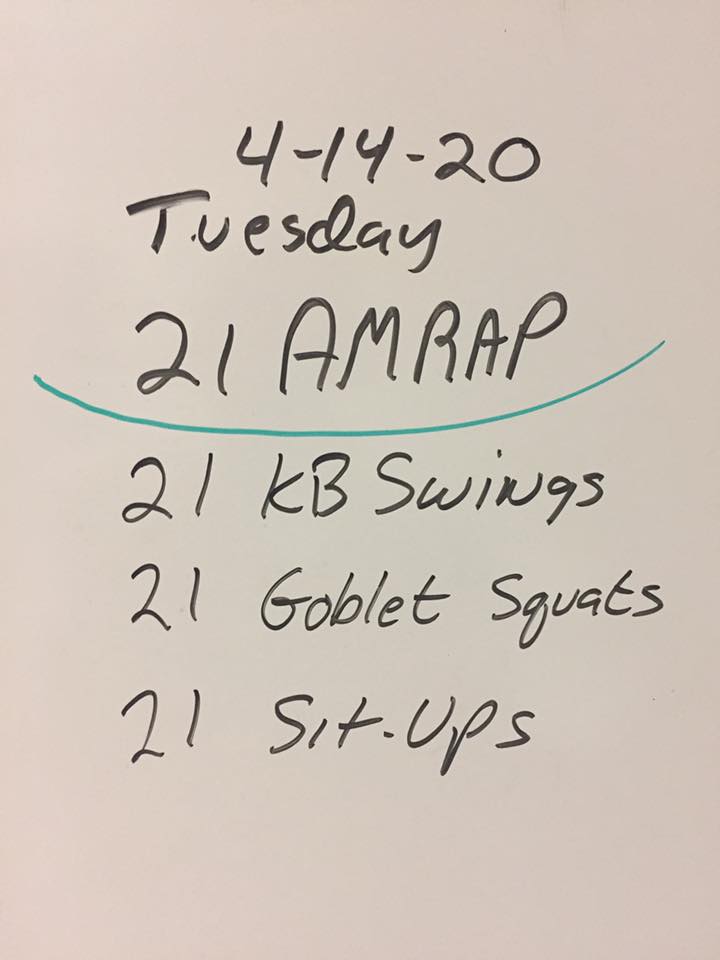 4-14-20
Tuesday
21 AMRAP
21 KB Swings
21 Goblet Squats
21 Sit-Ups